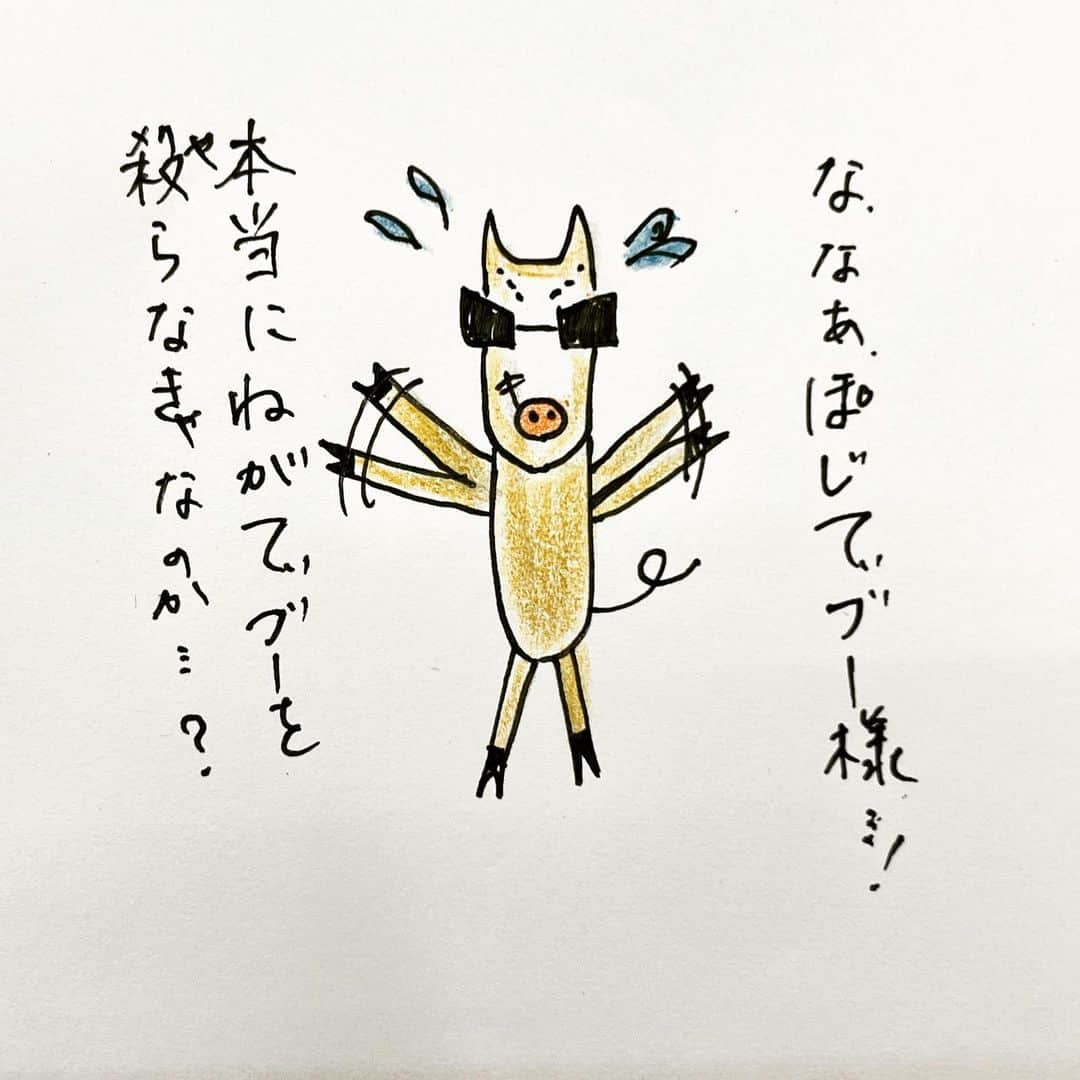 な、なあ、ぽじてぃブー様…!
本当にねがてぃブーを
殺らなきゃなのか…?